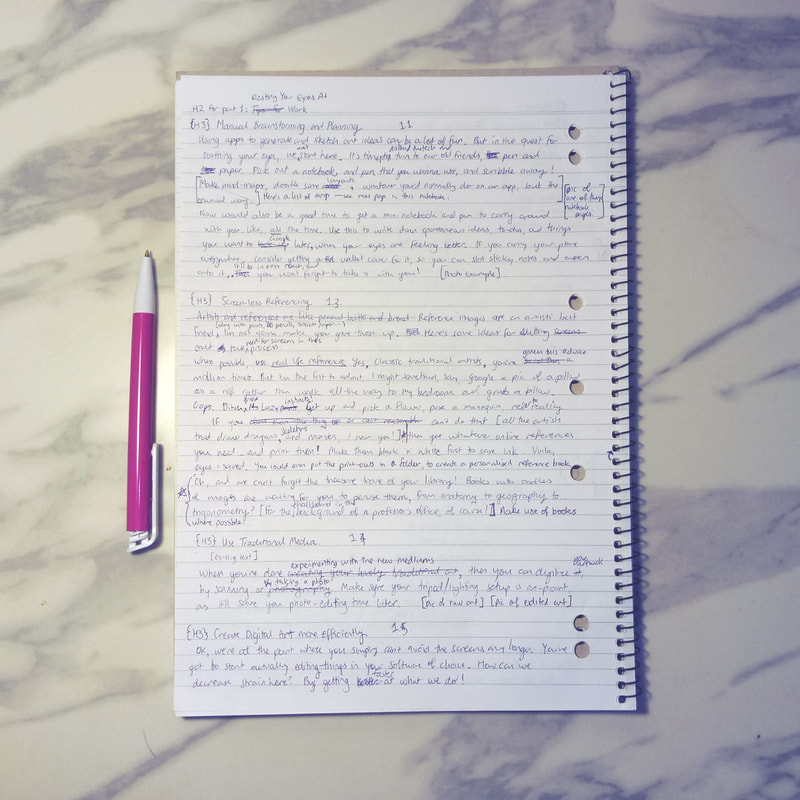 Resting Your Eyes At
H2 for part 1: Tips for Work
{H3} Manual Brainstorming and Planning 1.1
Using apps to generate and sketch art ideas can be a lot of fun. But in the quest for
soothing your eye, we start here. It's time to turn to our old friends, pen and
paper. Pick out a notebook and pen that you wanna use, and scribble away!
Make mind-maps, doodle some layouts, whatever you'd normally do on an app, but the
[Pic of
one of my
notebook
pages]
Now would also be a good time to get a mini notebook and pen to carry around
with you. Like, all the time. Use this to write down spontaneous ideas, to-dos, and things
you want to Google later, when your eyes are feeling better. If you carry your phone
everywhere, consider getting a wallet case for it, so you can slot sticky notes and
onto it. you won't forget to take it with you! [Photo Example]
{H3} Screenless Referencing 1.3
Artists and references are like peanut butter and bread Reference images are an artists' best
friend, I'm not gonna make you give those up. Here's some ideas for
out process
where possible, use real life references. Yes, classic traditional artists, you've given this advice a
million times. But I'm the first to admit, I might say, google a pic of a pillow
as a ref rather than walk all the way to my bedroom and grab a pillow.
Oops. Ditch those lazy instincts. Get up and pick a flower, pose a mannequin, refer to
If you can't do that [all the artists
skeletons
that draw dragons, and monsters, I hear you!] then get whatever online references
you need.. and print them! Make them black n white first to save ink. Voila,
eyes - saved. You could even put the print-outs in a folder, to create a personalised reference book.
Oh, and we can't forget the treasure trove of your library! Books with oodles
of images are waiting for you to peruse them, from anatomy to geography to
trigonometry? [For the background of a professor's office, of course!] Make use of books
where possible!
{H3} Use Traditional Media 1.4
experimenting with the new mediums
When you're done creating your lovely traditional art, then you can digitize it,
taking a photo
by scanning or photography. Make sure your tripod/lighting setup is on-point
as it'll save you photo-editing time later. [Pic of raw art] [Pic of edited art]
{H3} Create Digital Art more Efficiently 1.5
OK, we're at the point where you simply can't avoid the screens any longer. You've
got to start actually editing things in your software of choice. How can we
faster
decrease strain here? By getting better at what we do!